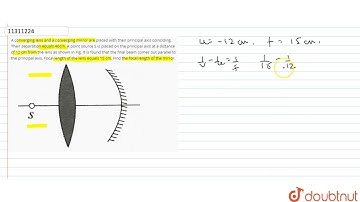 11311224
A converging lens and a converging mirror are placed with their principal axis coinciding.
Their separation equals 40cm. A point source S is placed on the principal axis at a distance
of 12 cm from the lens as shown in Fig. It is found that the final beam comes out parallel to
the principal axis. Focal length of the lens equals 15 cm. Find the focal length of the mirror.
S
u = -12 cm, f = 15 cm.
1/v - 1/u = 1/f 1/15 - 1/12
doubtnut